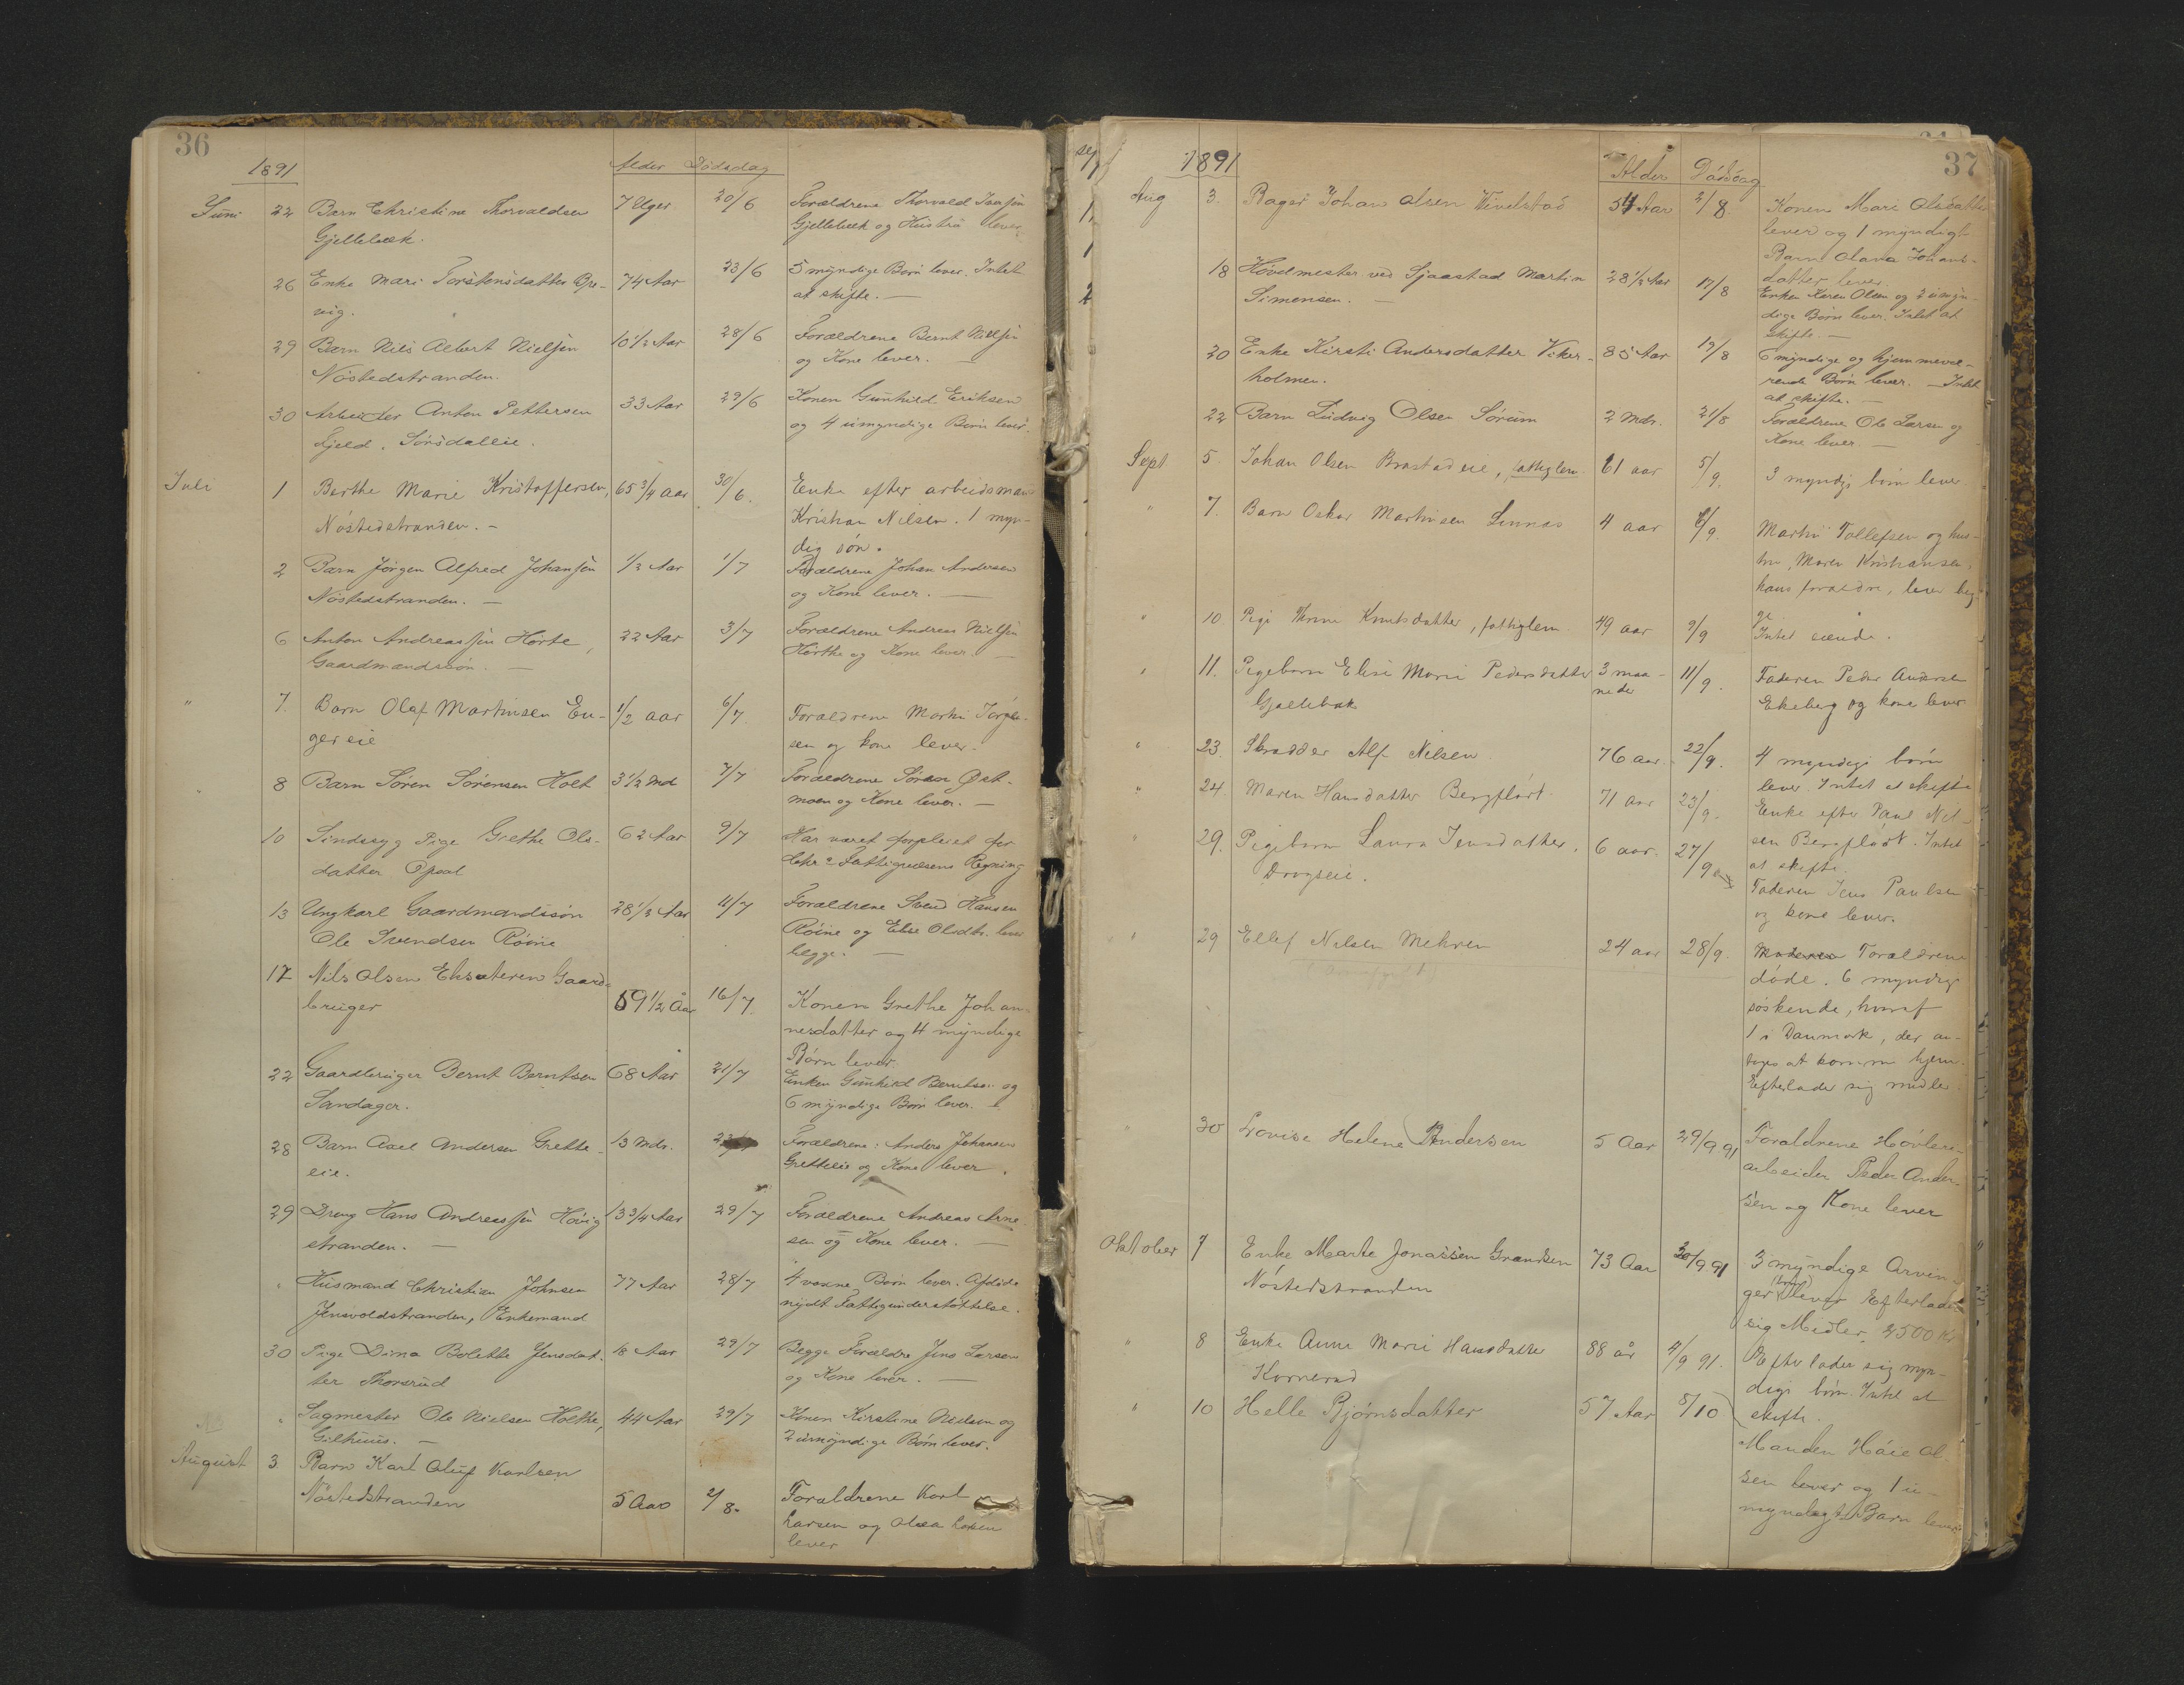 36
1891
Alder Dødsdag
Juni 22 Barn Christine Thorvaldsen 7 Uger 20/6 Forældrene Thorvald
Gjellebæk. Gjellebæk og Hustru lever
26 Enke Mari Torstensdatter 74 Aar 23/6 5 myndige Børn lever. Intet
vig. at skifte. —
29 Barn Nils Albert Nielsen 10 1/2 Aar 28/6 Forældrene Bernt Nielsen
Nøstedstranden. og Kone lever. —
30 Arbeider Anton Pettersen 33 Aar 29/6 Konen Gunhild Eriksen
Fjeld. Sørsdaleie. og 4 umyndige Børn lever.
Juli 1 Berthe Marie Kristoffersen, 65 3/4 aar 30/6. Enke efter arbeidsmand
Nøstedstranden. — Kristian Nilsen. 1 myn-
dig søn.
2 Barn Jørgen Alfred Johansen 1/2 Aar 1/7 Forældrene Johan Andersen
Nøstedstranden. — og Kone lever. —
6 Anton Andreassen Hørte, 22 Aar 3/7 Forældrene Andreas Nielsen
Gaardmandssøn. — Hørthe og Kone lever. —
" 7. Barn Olaf Martinsen En- 1/2 aar 6/7. Forældrene Martin Jørgen-
ger eie sen og kone lever.
" 8 Barn Søren Sørensen Holt 3 1/2 Md 7/7 Forældrene Søren Øst-
moen og Kone lever. —
10 Sindssyg Pige Grethe Ols- 62 Aar 9/7 Har været forpleiet for
datter Opsal Fattigvæsens Regning
13 Ungkarl Gaardmandssøn 28 1/2 Aar 11/7 Forældrene Svend Hansen
Ole Svendsen Røine Røine og Else Olsdtr. lever
begge. —
17 Nils Olsen Eksæteren Gaard-
bruger 59 1/2 Aar 16/7. Konen Grethe Johan-
nesdatter og 4 myndige
Børn lever.
22 Gaardbruger Bernt Berntsen 68 Aar 21/7 Enken Gunhild Berntsen og
Sandager. 6 myndige Børn lever. —
28 Barn Axel Andersen Grette- 13 Mdr. Forældrene: Anders Johansen
eie. Gretteeie og Kone lever.
29 Dreng Hans Andreassen Høvig 13 3/4 Aar 29/7 Forældrene Andreas Arne-
stranden. — sen og Kone lever. —
" Husmand Christian Johnsen 77 Aar 28/7 4 voxne Børn lever. Afdøde
Jensvoldstranden, Enkemand nydt Fattigunderstøttelse.
30 Pige Dina Bolette Jensdat- 18 Aar 29/7 Begge Forældre Jens Larsen
ter Thorsrud og Kone lever. —
" Sagmester Ole Nielsen Holthe, 44 Aar 29/7 Konen Kirstine Nielsen og
Gilhuus. — 2 umyndige Børn lever.
August 3. Barn Karl Oluf Karlsen
Nøstedstranden 5 Aar 2/8. Forældrene Karl
Larsen og Olea Larsen
lever
37
1891
Alder Dødsdag
Aug 3. Bager Johan Olsen Vivelstad 54 Aar 2/8. Konen Mari Olsdatter
lever og 1 myndigt
Barn Olava Johans-
datter lever.
18 Høvelmester ved Sjaastad Martin 28 1/2 Aar 17/8 Enken Karen Olsen og 2 umyn-
Simensen. — dige Børn lever. Intet at
skifte. —
20 Enke Kirsti Andersdatter Viker- 85 Aar 19/8 6 myndige og hjemmevæ-
holmen. rende Børn lever. — Intet
at skifte. —
22 Barn Ludvig Olsen Sørum 2 Mdr. 21/8 Forældrene Ole Larsen og
Kone lever. —
Sept. 5. Johan Olsen Brastadeie, fattiglem. 61 aar 5/9. 3 myndige børn lever
" 7. Barn Oskar Martinsen Linnes 4 aar 6/9. Martin Tollefsen og hus-
tru, Maren Kristiansen,
hans forældre, lever beg-
ge
" 10. Pige Knutsdatter, fattiglem. 49 aar 9/9 Intet eiende.
" 11. Pigebarn Elise Marie Pedersdatter 3 maa- 11/9. Faderen Peder Andersen
Gjellebæk neder Ekeberg og kone lever
" 23. Skrædder Alf Nilsen 76 aar. 22/9. 4 myndige børn
lever. Intet at skifte
" 24. Maren Hansdatter Bergflødt 71 aar 23/9. Enke efter Paul Nil-
sen Bergflødt. Intet
at skifte.
" 29. Pigebarn Laura Jensdatter, 6 aar. 27/9 Faderen Jens Paulsen
Drogseie. og kone lever.
" 29 Ellef Nilsen Mehren 24 aar 28/9. Forældrene
døde. 6 myndige
søskende, hvoraf
1 i Danmark, der an-
tages at komme hjem.
Efterlader sig midler
" 30 Lovise Helene Andersen 5 Aar 29/9 91 Forældrene Høvleri-
arbeider Peder Ander-
sen og Kone lever
Oktober 7 Enke Marte Jonassen Grandsen 73 Aar 30/9 91 3 myndige Arvin-
Nøstedstranden ger lever Efterlader
sig Midler 2500 Kr
" 8 Enke Anne Marie Hansdatter 88 år 4/9 91. Efterlader sig myn-
Kornerud dige børn. Intet at
skifte.
" 10 Helle Bjørnsdatter 57 Aar 8/10 Manden Håie Ol-
sen lever og 1 u-
myndigt Barn lever